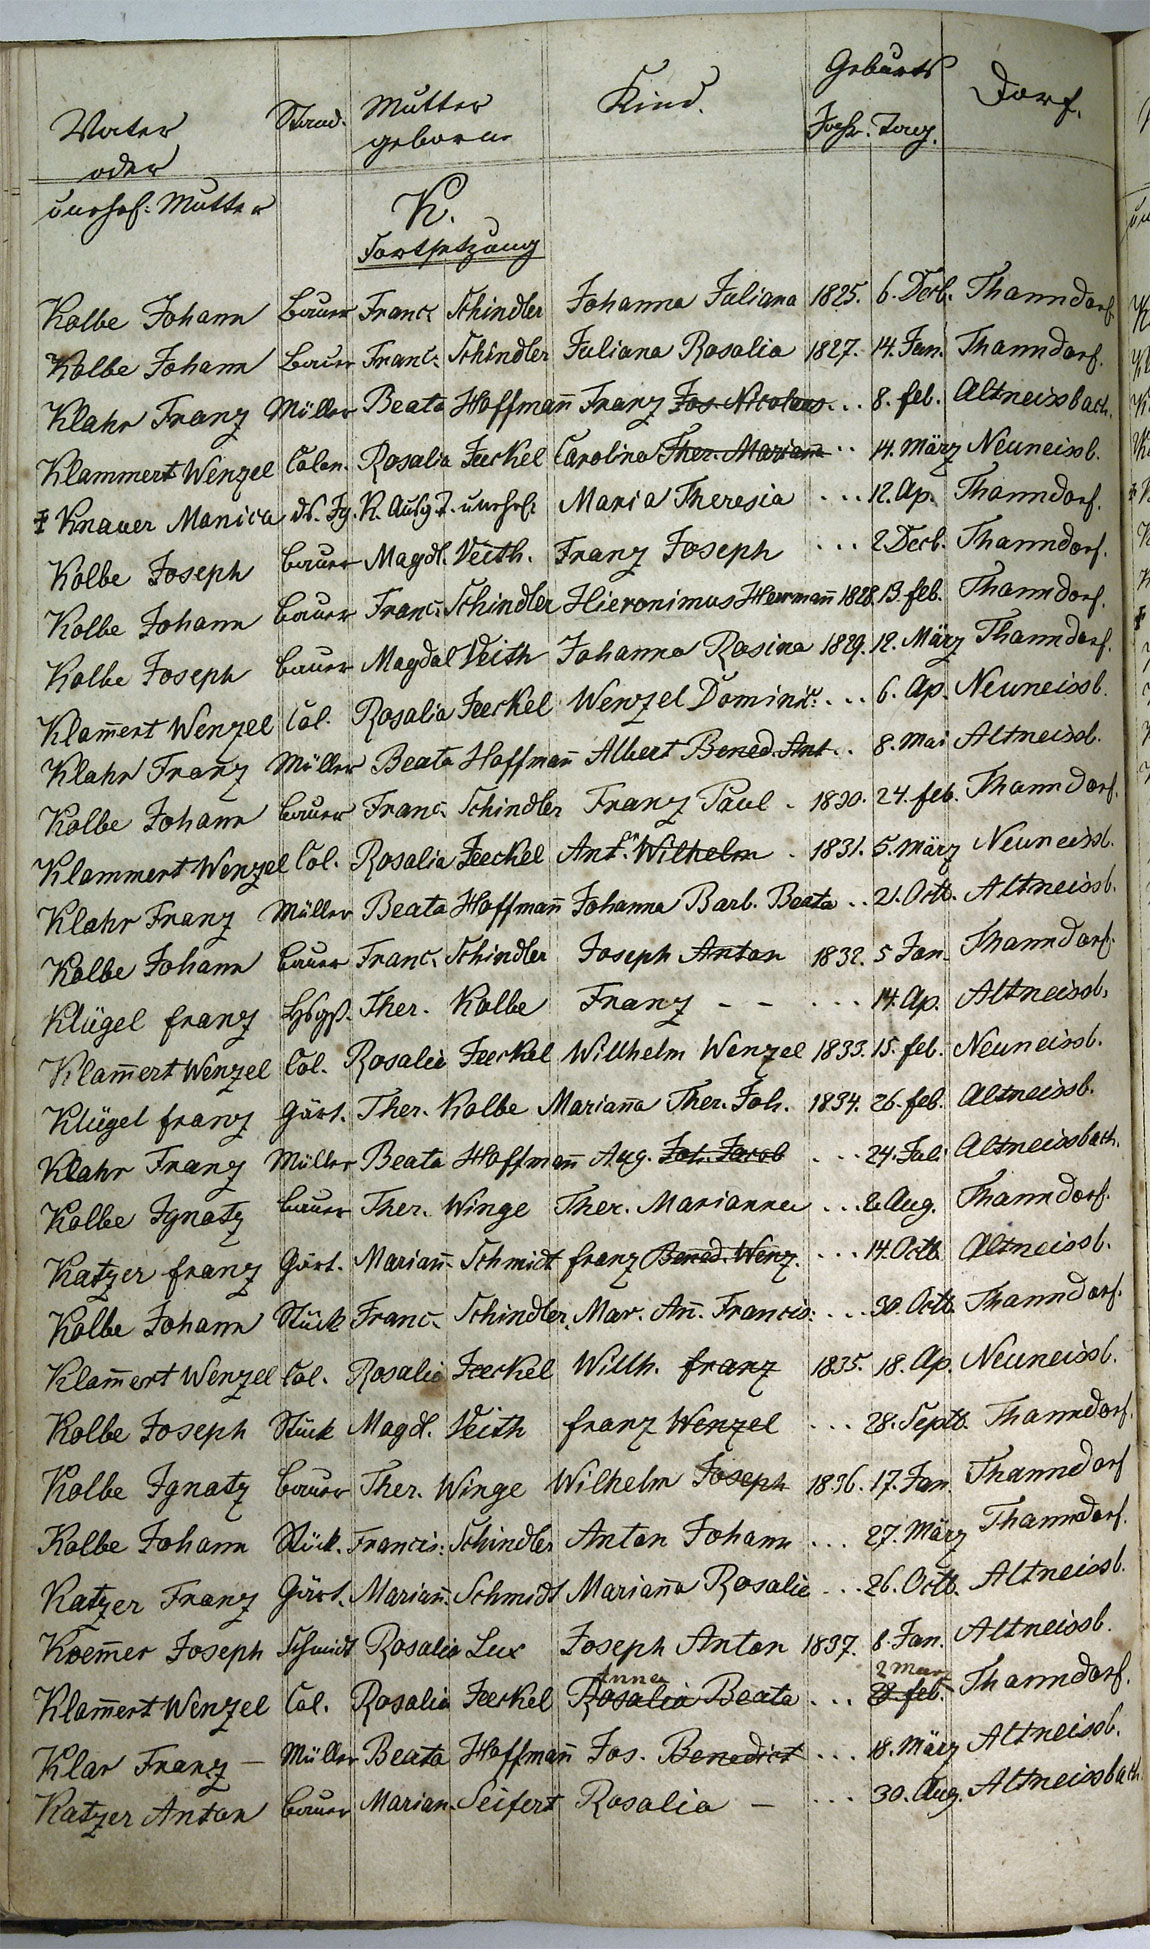 Vater Stand. Mutter Kind. Geburts Dorf.
oder geborne Jahr. Tag.
unehel: Mutter
K.
Fortsetzung
Kolbe Johann Bauer Franc. Schindler Johanna Juliana 1825. 6. Decb. Thanndorf.
Kolbe Johann Bauer Franc. Schindler Juliana Rosalia 1827. 14. Jan. Thanndorf.
Klahr Franz Müller Beata Hoffmañ Franz Jos. Nicolaus ... 8. feb. Altneissbach.
Klammert Wenzel Colon. Rosalia Jeckel Carolina Ther. Mariañ ... 14. März Neuneissb.
Knauer Monica K. Ausg. T. unehel: Maria Theresia ... 12. Ap. Thanndorf.
Kolbe Joseph Bauer Magdl. Veith. Franz Joseph ... 2 Decb. Thanndorf.
Kolbe Johann Bauer Franc. Schindler Hieronimus Hermañ 1828. 13. feb. Thanndorf.
Kolbe Joseph Bauer Magdal Veith Johanna Rosina 1829. 12. März Thanndorf.
Klam̃ert Wenzel Col. Rosalia Jeckel Wenzel Dominic: ... 6. Ap. Neuneissb.
Klahr Franz Müller Beata Hoffmañ Albert Bened. Ant .. 8. Mai Altneissb.
Kolbe Johann Bauer Franc. Schindler Franz Paul . 1830. 24. feb. Thanndorf.
Klammert Wenzel Col. Rosalia Jeckel Ant. Wilhelm . 1831. 5. März Neuneissb.
Klahr Franz Müller Beata Hoffmañ Johanna Barb. Beata .. 21. Octb. Altneissb.
Kolbe Johann Bauer Franc. Schindler Joseph Anton 1832. 5 Jan. Thanndorf.
Klügel franz Hsgß. Ther. Kolbe Franz - - ... 14. Ap. Altneissb.
Klam̃ert Wenzel Col. Rosalie Jeckel Willhelm Wenzel 1833. 15. feb. Neuneissb.
Klügel franz Gärt. Ther. Kolbe Mariaña Ther. Joh. 1834. 26. feb. Altneissb.
Klahr Franz Müller Beata Hoffmañ Aug. Joh. Jacob ... 24. Juli Altneissbach.
Kolbe Ignatz Bauer Ther. Winge Ther. Marianna ... 2. Aug. Thanndorf.
Katzer franz Gärt. Mariañ Schmidt franz Bened. Wenz. ... 14. Octb. Altneissb.
Kolbe Johann Stück Franc. Schindler. Mar. Añ. Francis: ... 30. Octb. Thanndorf.
Klam̃ert Wenzel Col. Rosalie Jeckel Willh. franz 1835. 18. Ap. Neuneissb.
Kolbe Joseph Stück Magd. Veith franz Wenzel ... 28. Septb. Thanndorf.
Kolbe Ignatz Bauer Ther. Winge Wilhelm Joseph 1836. 17. Jan. Thanndorf
Kolbe Johann Stück. Francis: Schindler Anton Johann ... 27. März Thanndorf.
Katzer Franz Gärt. Mariañ. Schmidt Mariaña Rosalie ... 26. Octb. Altneissb.
Koem̃er Joseph Schmidt Rosalia Lux Joseph Anton 1837. 8. Jan. Altneissb.
Anna 2 März
Klam̃ert Wenzel Col. Rosalia Jeckel Rosalia Beata ... 28 feb. Thanndorf.
Klar Franz - Müller Beata Hoffmañ Jos. Benedict ... 18. März Altneissb.
Katzer Anton Bauer Marian. Seifert Rosalia - ... 30. Aug. Altneissbach.